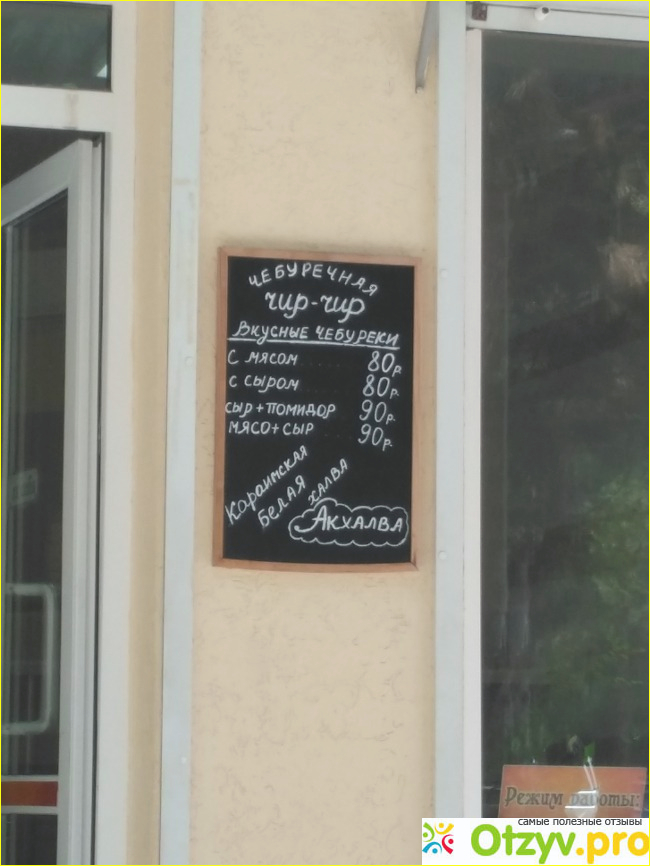 ЧЕБУРЕЧНАЯ
чир-чир
ВКУСНЫЕ ЧЕБУРЕКИ
С МЯСОМ 80р.
С СЫРОМ 80р.
СЫР+ПОМИДОР 90р.
МЯСО+СЫР 90р.
Караимская
БЕЛАЯ
ХАЛВА
АКХАЛВА
Режим работы:
самые полезные отзывы
Otzyv.pro